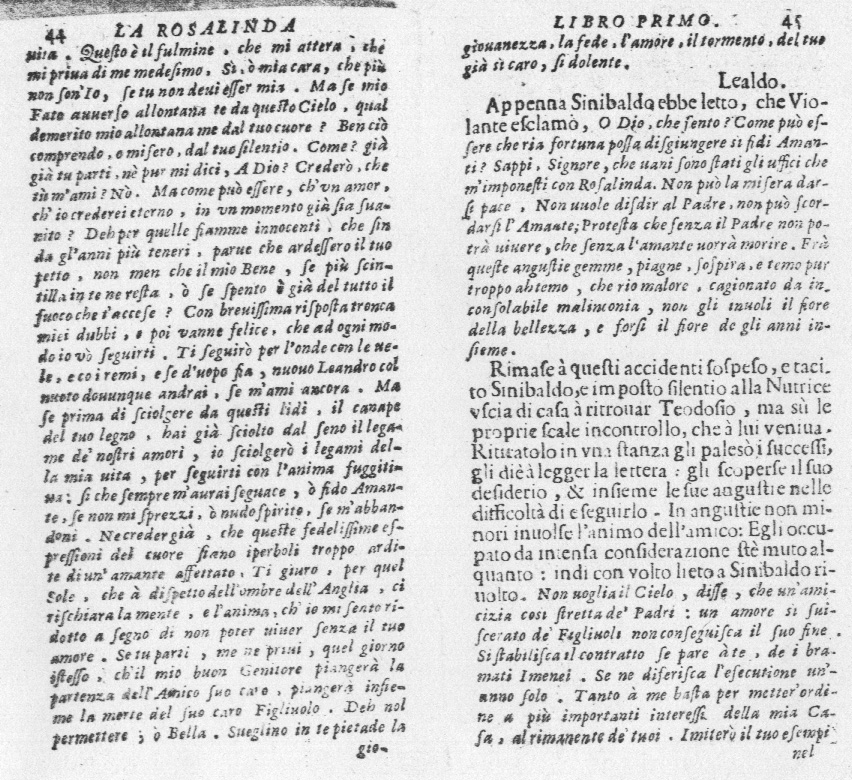 44 LA ROSALINDA
vita . Questo è il fulmine , che mi attera , che
mi priua di me medesimo. Sì, ò mia cara, che più
non son'Io, se tu non deui esser mia . Ma se mio
Fato auuerso allontana te da questo Cielo , qual
demerito mio allontana me dal tuo cuore ? Ben ciò
comprendo, o misero, dal tuo silentio. Come? già
già tu parti, nè pur mi dici, A Dio? Crederò, che
tù m'ami? Nò. Ma come può essere, ch'vn amor,
ch'io crederei eterno , in vn momento già sia sua-
nito ? Deh per quelle fiamme innocenti , che sin
da gl'anni più teneri , parue che ardessero il tuo
petto , non men che il mio Bene , se più scin-
tilla in te ne resta , ò se spento è già del tutto il
fuoco che t'accese ? Con breuissima risposta tronca
miei dubbi , e poi vanne felice, che ad ogni mo-
do io vò seguirti . Ti seguirò per l'onde con le ue-
le, e co i remi, e se d'uopo fia, nuouo Leandro col
nuoto dounque andrai, se m'ami ancora . Ma
se prima di sciolgere da questi lidi , il canape
del tuo legno , hai già sciolto dal seno il lega-
me de' nostri amori , io sciolgerò i legami del-
la mia uita , per seguirti con l'anima fuggiti-
ua: si che sempre m'aurai seguace , ò fido Aman-
te, se non mi sprezzi, ò nudo spirito, se m'abban-
doni . Ne creder già , che queste fedelissime es-
pressioni del cuore siano iperboli troppo ardi-
te di un'amante affettato. Ti giuro , per quel
Sole , che à dispetto dell'ombre dell'Anglia , ci
rischiara la mente , e l'anima, ch'io mi sento ri-
dotto a segno di non poter viuer senza il tuo
amore . Se tu parti , me ne priui , quel giorno
istesso , ch'il mio buon Genitore piangerà la
partenza dell'Amico suo caro , piangerà infie-
me la morte del suo caro Figliuolo . Deh nol
permettere ; ò Bella . Sueglino in te pietade la
gio-
LIBRO PRIMO. 45
giouanezza, la fede, l'amore, il tormento, del tuo
già sì caro, sì dolente.
Lealdo.
Appenna Sinibaldo ebbe letto, che Vio-
lante esclamò, O Dio, che sento? Come può es-
sere che ria fortuna possa disgiungere sì fidi Aman-
ti? Sappi, Signore, che uani sono stati gli uffici che
m'imponesti con Rosalinda. Non può la misera dar-
si pace . Non uuole disdir al Padre, non può scor-
darsi l'Amante; Protesta che senza il Padre non po-
trà uiuere, che senza l'amante uorrà morire. Frà
queste angustie gemme, piagne, sospira, e temo pur
troppo ahtemo , che rio malore , cagionato da in-
consolabile malinconia , non gli inuoli il fiore
della bellezza , e forsi il fiore de gli anni in-
sieme .
Rimase à questi accidenti sospeso, e taci-
to Sinibaldo, e imposto silentio alla Nutrice
vscia di casa à ritrouar Teodosio , ma sù le
proprie scale incontrollo, che à lui veniua.
Ritiratolo in vna stanza gli palesò i successi,
gli diè à legger la lettera : gli scoperse il suo
desiderio , & insieme le sue angustie nelle
difficoltà di eseguirlo . In angustie non mi-
nori inuolse l'animo dell'amico: Egli occu-
pato da intensa considerazione stè muto al-
quanto : indi con volto lieto a Sinibaldo ri-
uolto. Non uoglia il Cielo , disse , che un'ami-
cizia così stretta de' Padri : un amore sì sui-
scerato de' Figliuoli non conseguisca il suo fine .
Si stabilisca il contratto se pare à te , de i bra-
mati Imenei . Se ne diferisca l'esecutione un'-
anno solo . Tanto à me basta per metter'ordi-
ne a più importanti interessi della mia Ca-
sa, al rimanente de' tuoi . Imiterò il tuo esempi
nel